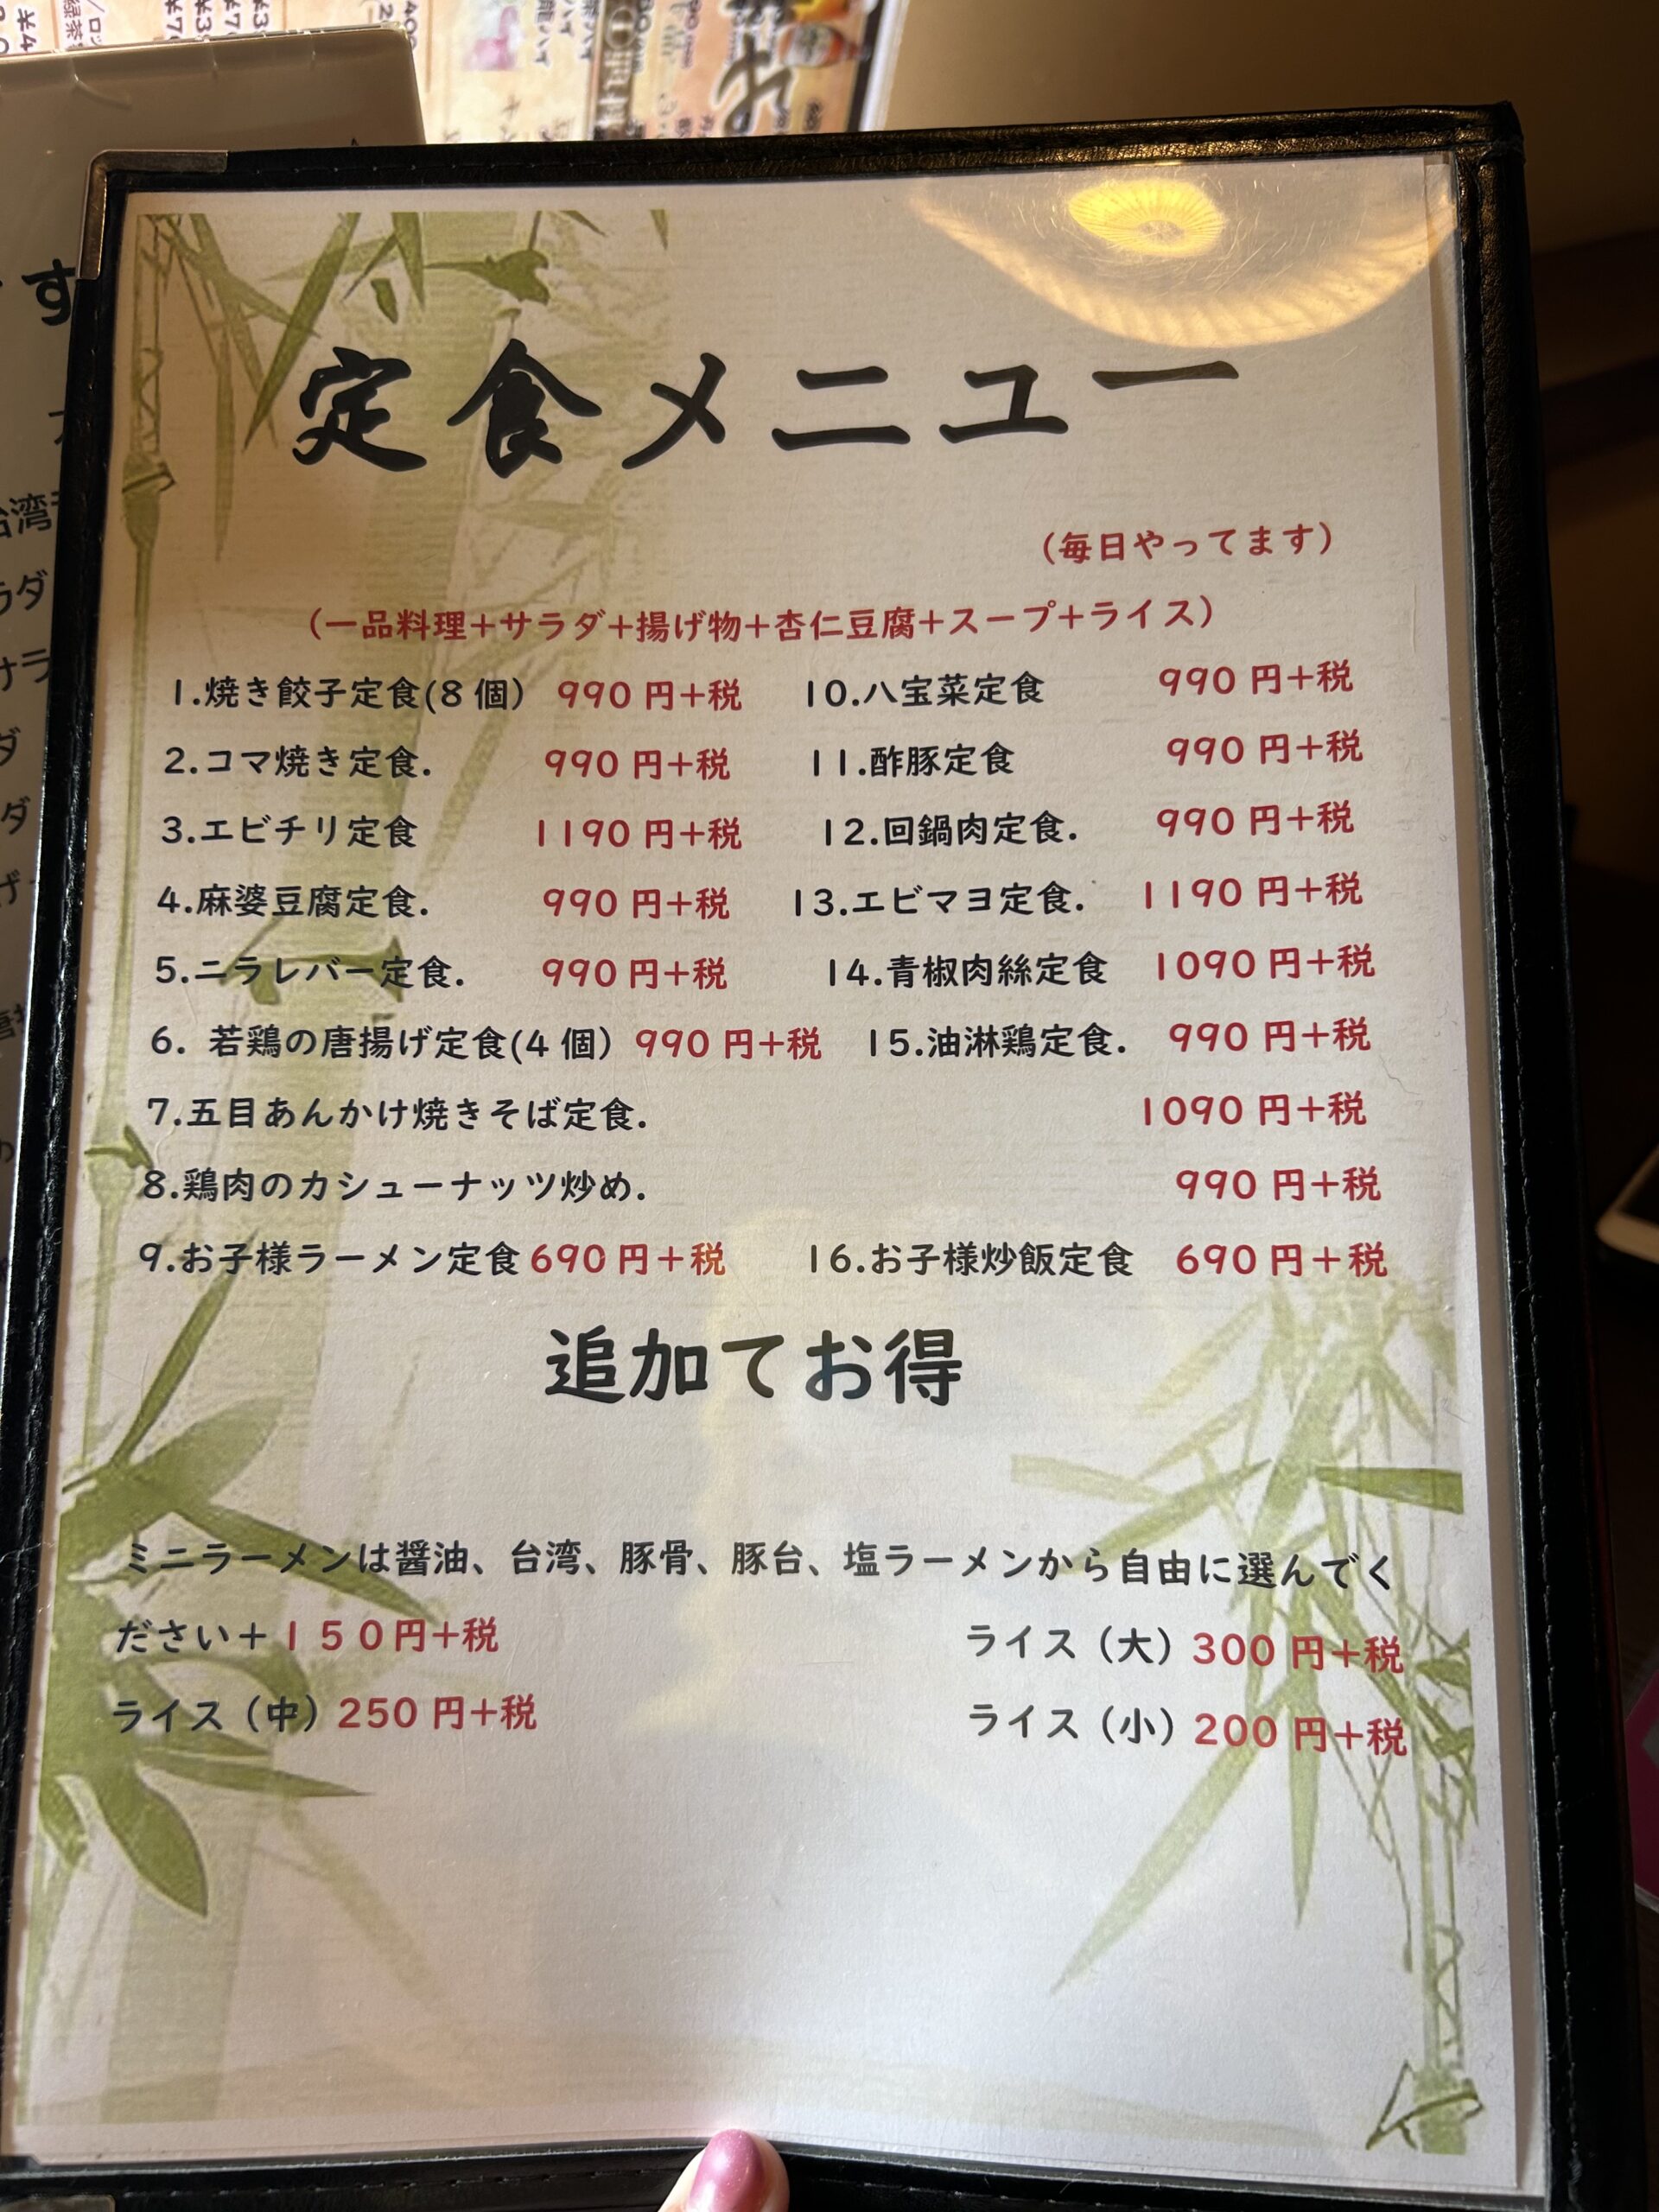 定食メニュー
（毎日やってます）
（一品料理＋サラダ＋揚げ物＋杏仁豆腐＋スープ＋ライス）
1.焼き餃子定食(8個） 990円＋税 10.八宝菜定食 990円＋税
2.コマ焼き定食. 990円＋税 11.酢豚定食 990円＋税
3.エビチリ定食 1190円＋税 12.回鍋肉定食. 990円＋税
4.麻婆豆腐定食. 990円＋税 13.エビマヨ定食. 1190円＋税
5.ニラレバー定食. 990円＋税 14.青椒肉絲定食 1090円＋税
6. 若鶏の唐揚げ定食(4個） 990円＋税 15.油淋鶏定食. 990円＋税
7.五目あんかけ焼きそば定食. 1090円＋税
8.鶏肉のカシューナッツ炒め. 990円＋税
9.お子様ラーメン定食 690円＋税 16.お子様炒飯定食 690円＋税
追加てお得
ミニラーメンは醤油、台湾、豚骨、豚台、塩ラーメンから自由に選んでく
ださい＋１５０円＋税 ライス（大）300円＋税
ライス（中）250円＋税 ライス（小）200円＋税